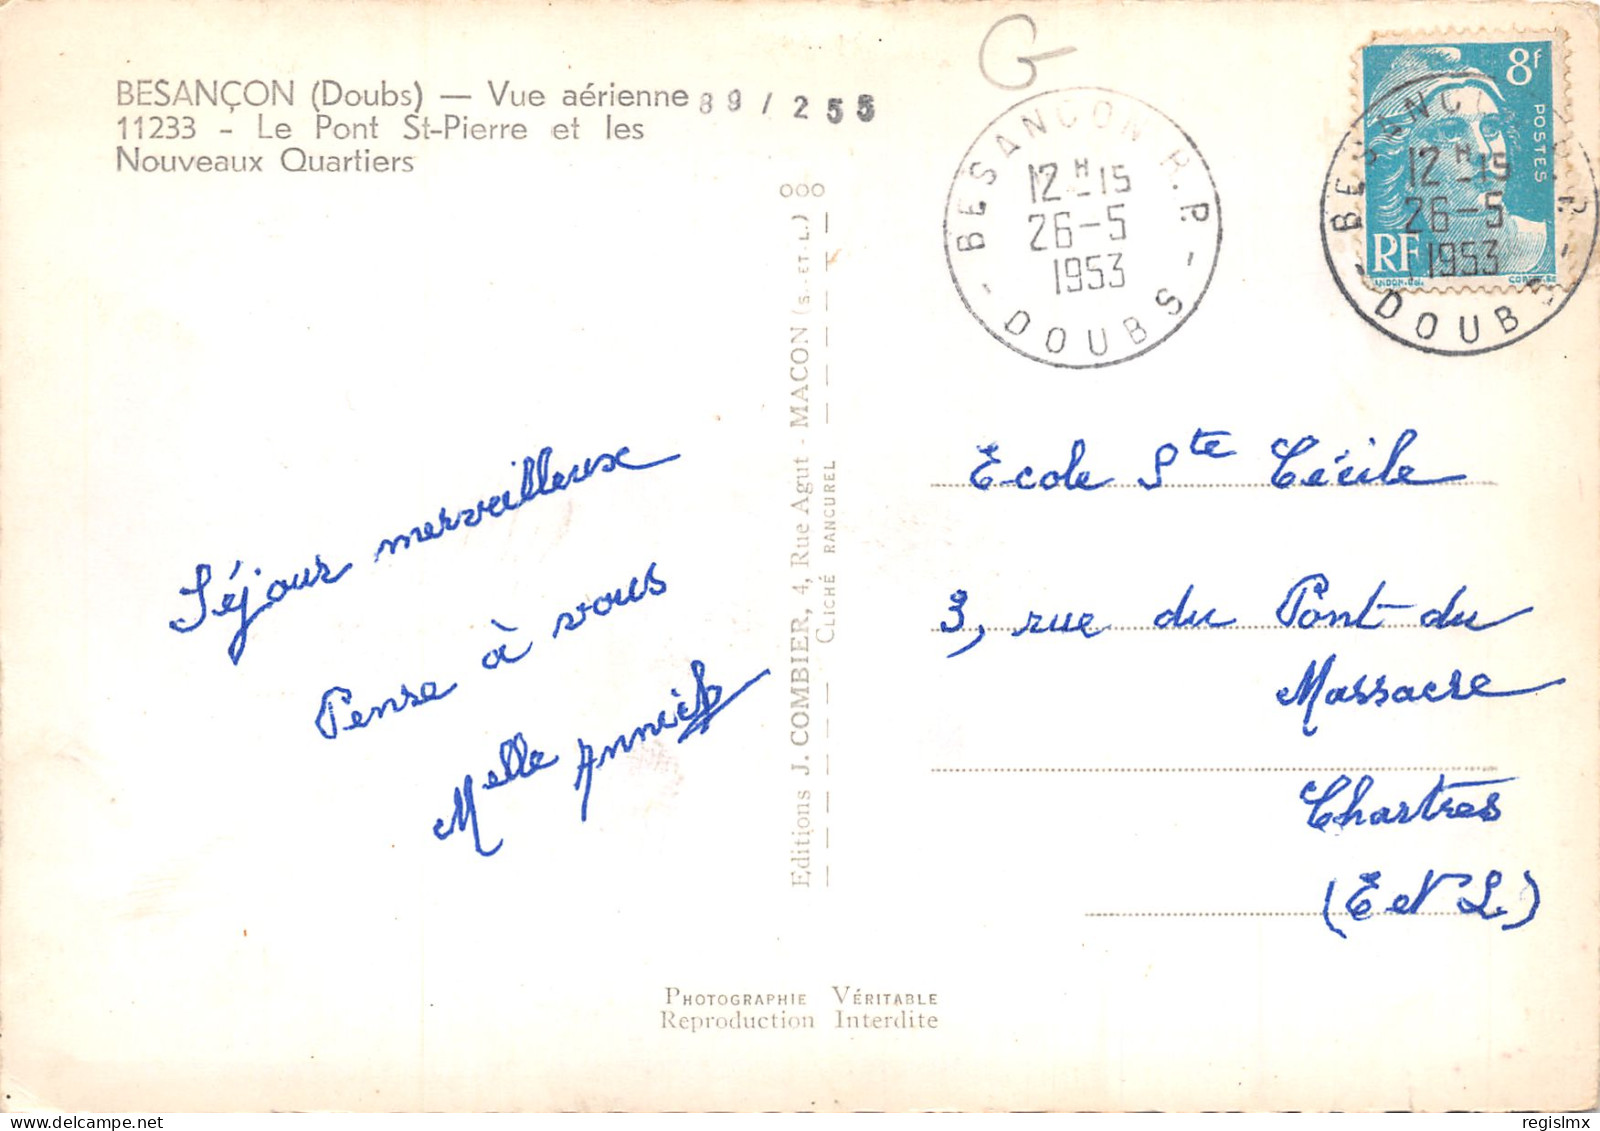 BESANÇON (Doubs) — Vue aérienne
89/255
11233 - Le Pont St-Pierre et les
Nouveaux Quartiers
G
BESANCON R.P.
12H-15
26-5
1953
- DOUBS -
8f
POSTES
RF
BESANCON R.P.
12H-15
26-5
1953
- DOUBS -
Séjour merveilleux
Pense à vous
Melle Annick
Editions J. COMBIER, 4, Rue Agut - MACON (S.-ET-L.) ooo
CLICHÉ RANCUREL
Ecole Ste Cécile
3, rue du Pont-du
Massacre
Chartres
(E et L.)
PHOTOGRAPHIE VÉRITABLE
Reproduction Interdite
delcampe.net
regislmx